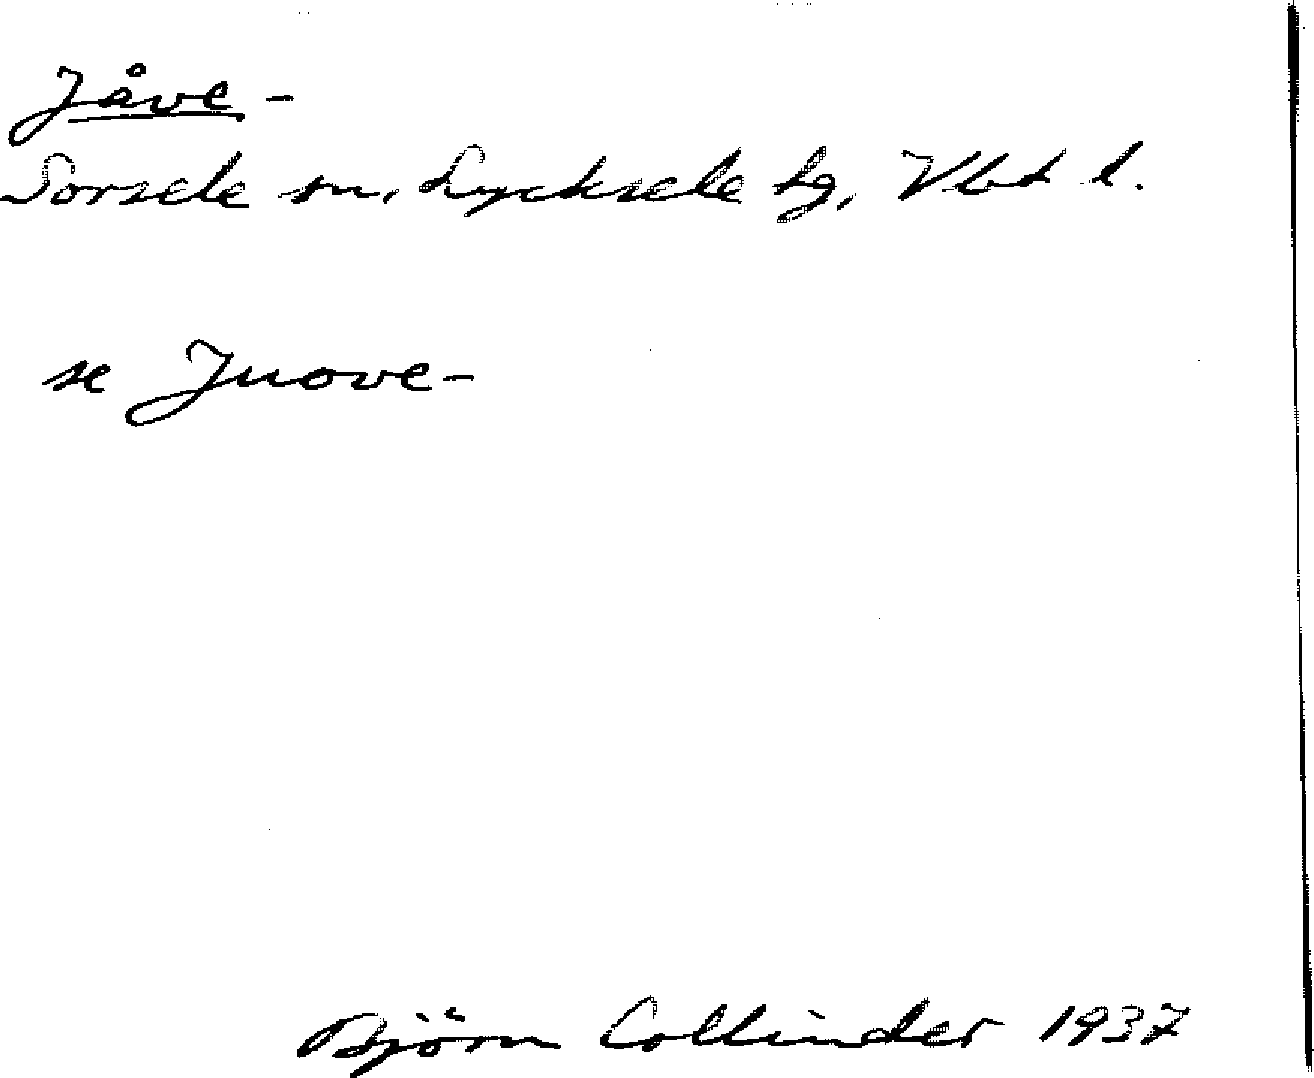 Jåve-
Sorsele sn, Lycksele tg, Vbt l.
se Juove-
Björn Collinder 1937